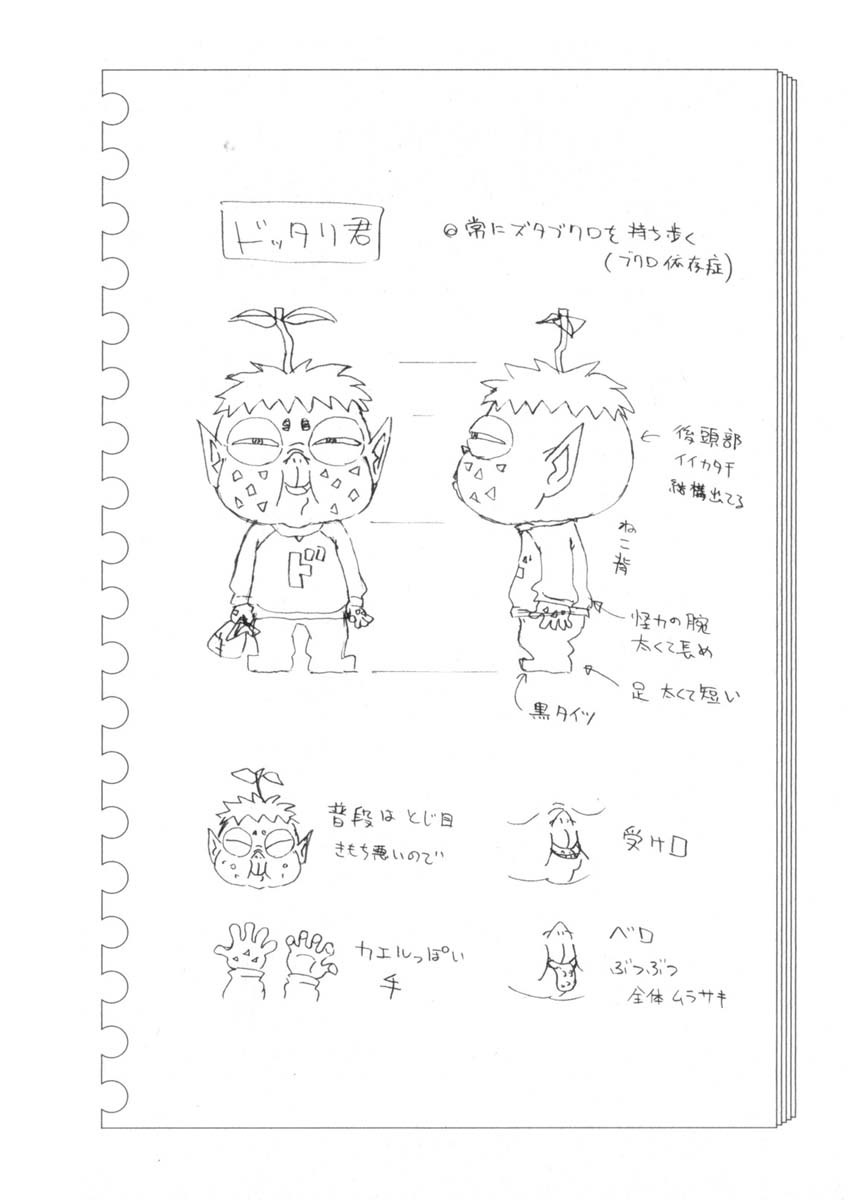 ドッタリ君
◎常にズタブクロを持ち歩く
(ブクロ依存症)
後頭部
イイカタチ
結構出てる
ねこ背
ド
怪力の腕
太くて長め
足 太くて短い
黒タイツ
普段はとじ目
きもち悪いので
受け口
カエルっぽい
手
ベロ
ぶつぶつ
全体ムラサキ